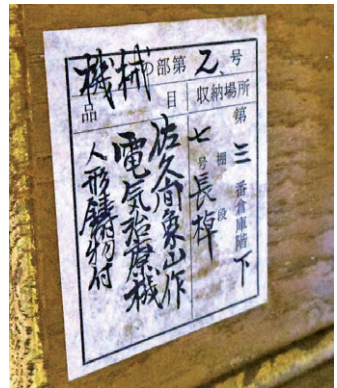 機械の部第乙、号
収納場所
第三番倉庫階下
七号棚段
長棹
品目
佐久間象山作
電気治療機
人形鋳物付